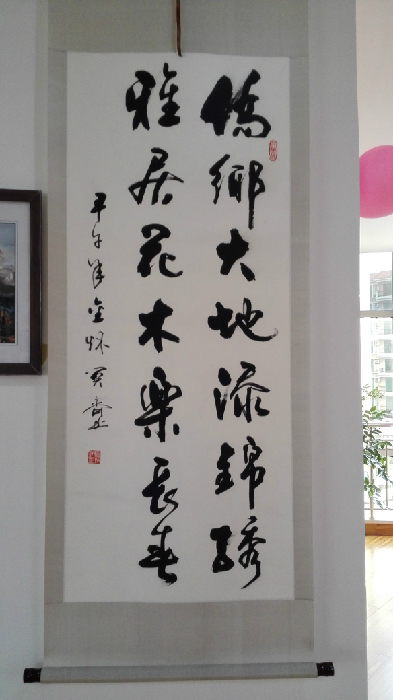 僑鄉大地添錦繡
雅居花木樂長春
甲午年